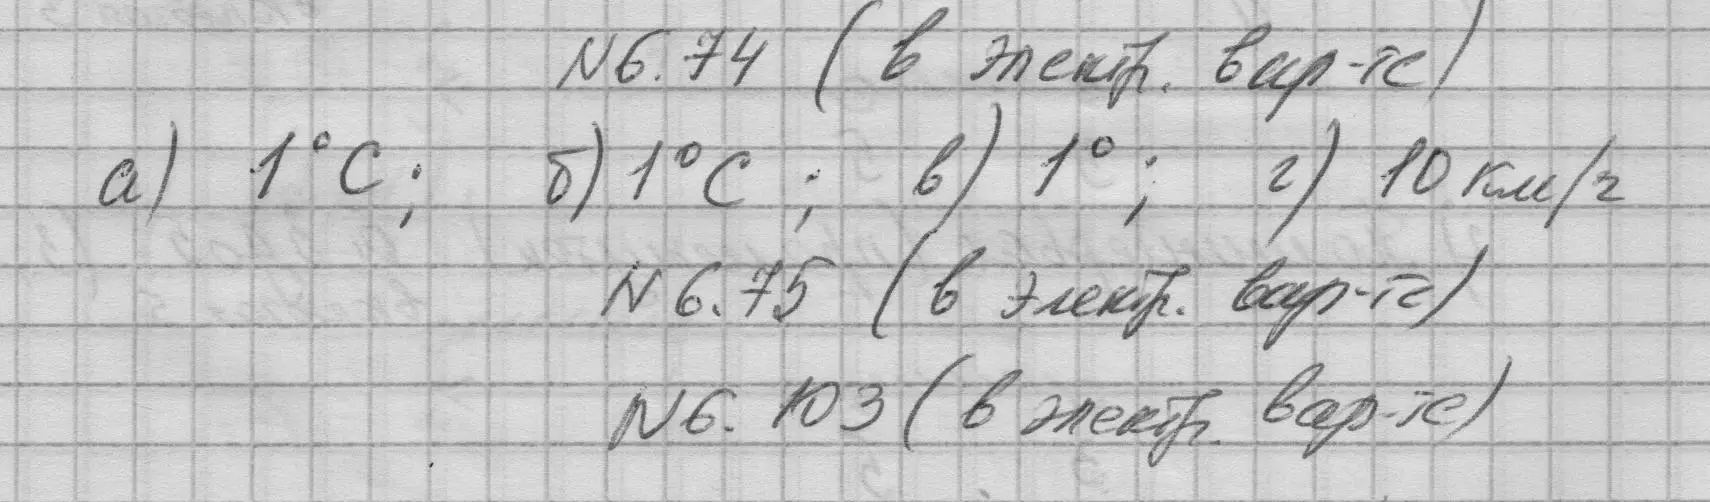 №6.74 (в электр. вар-те)
а) 1°С; б) 1°С; в) 1°; г) 10 км/ч
№6.75 (в электр. вар-те)
№6.103 (в электр. вар-те)